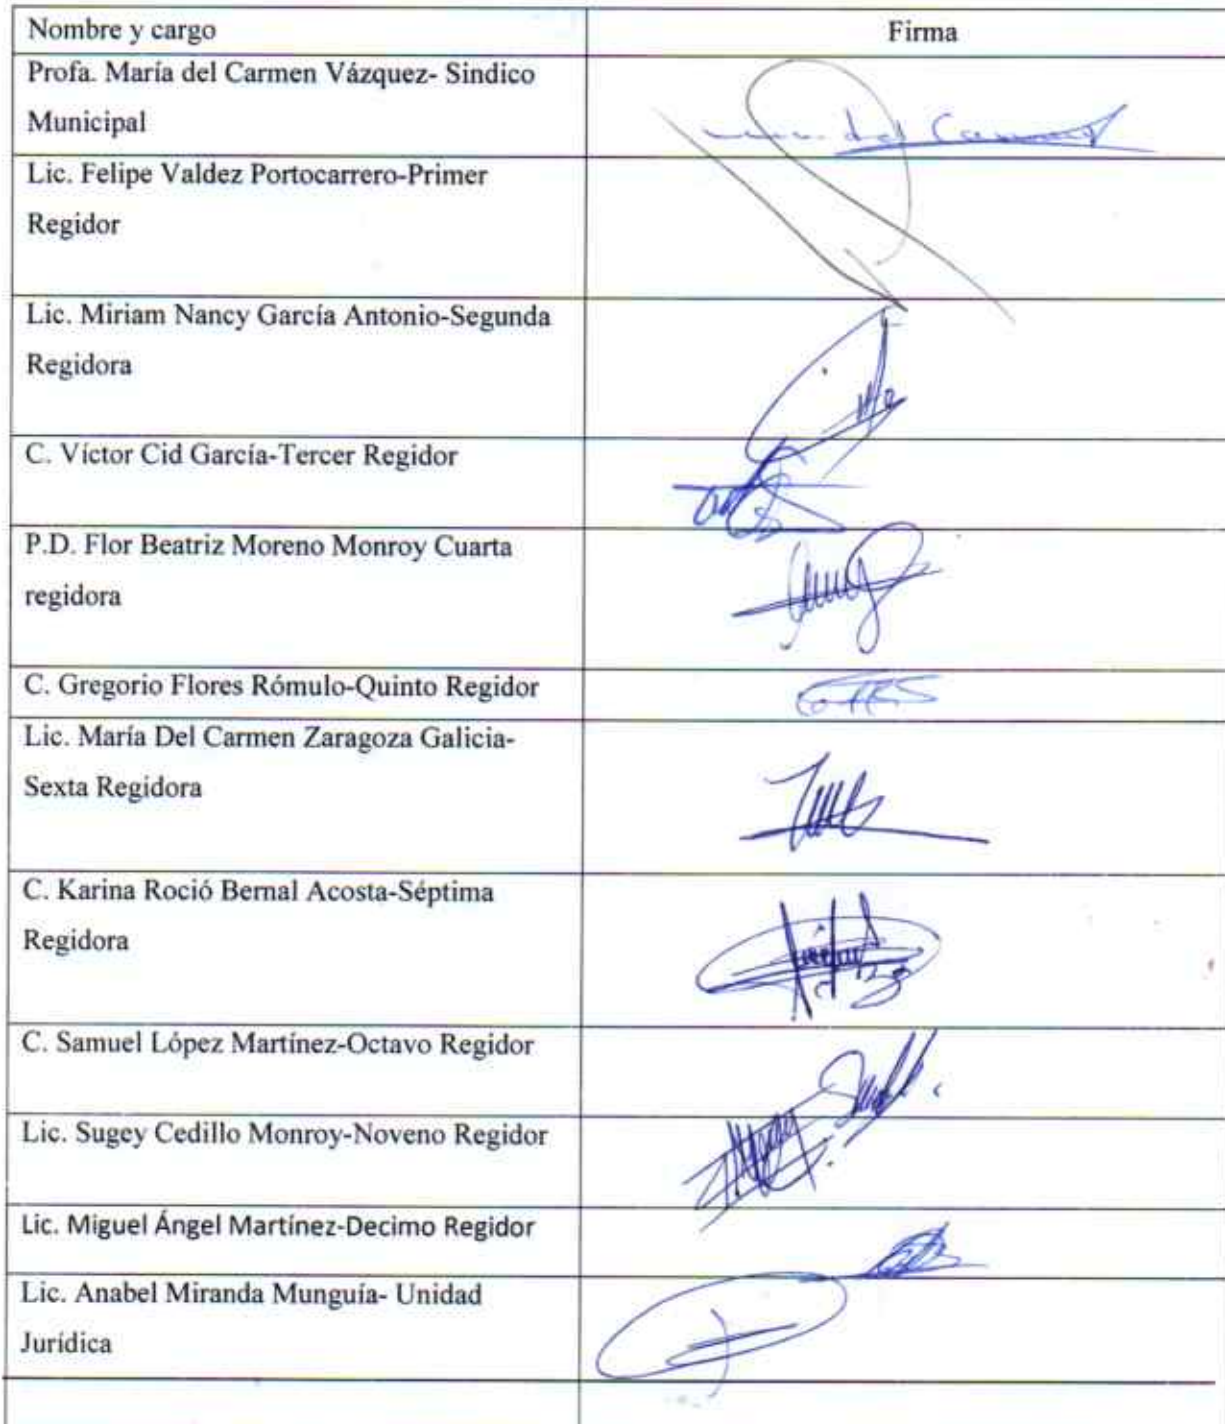 Nombre y cargo
Firma
Profa. María del Carmen Vázquez- Sindico
Municipal
del Carmen
Lic. Felipe Valdez Portocarrero-Primer
Regidor
Lic. Miriam Nancy García Antonio-Segunda
Regidora
C. Víctor Cid García-Tercer Regidor
P.D. Flor Beatriz Moreno Monroy Cuarta
regidora
C. Gregorio Flores Rómulo-Quinto Regidor
Lic. María Del Carmen Zaragoza Galicia-
Sexta Regidora
C. Karina Roció Bernal Acosta-Séptima
Regidora
C. Samuel López Martínez-Octavo Regidor
Lic. Sugey Cedillo Monroy-Noveno Regidor
Lic. Miguel Ángel Martínez-Decimo Regidor
Lic. Anabel Miranda Munguía- Unidad
Jurídica